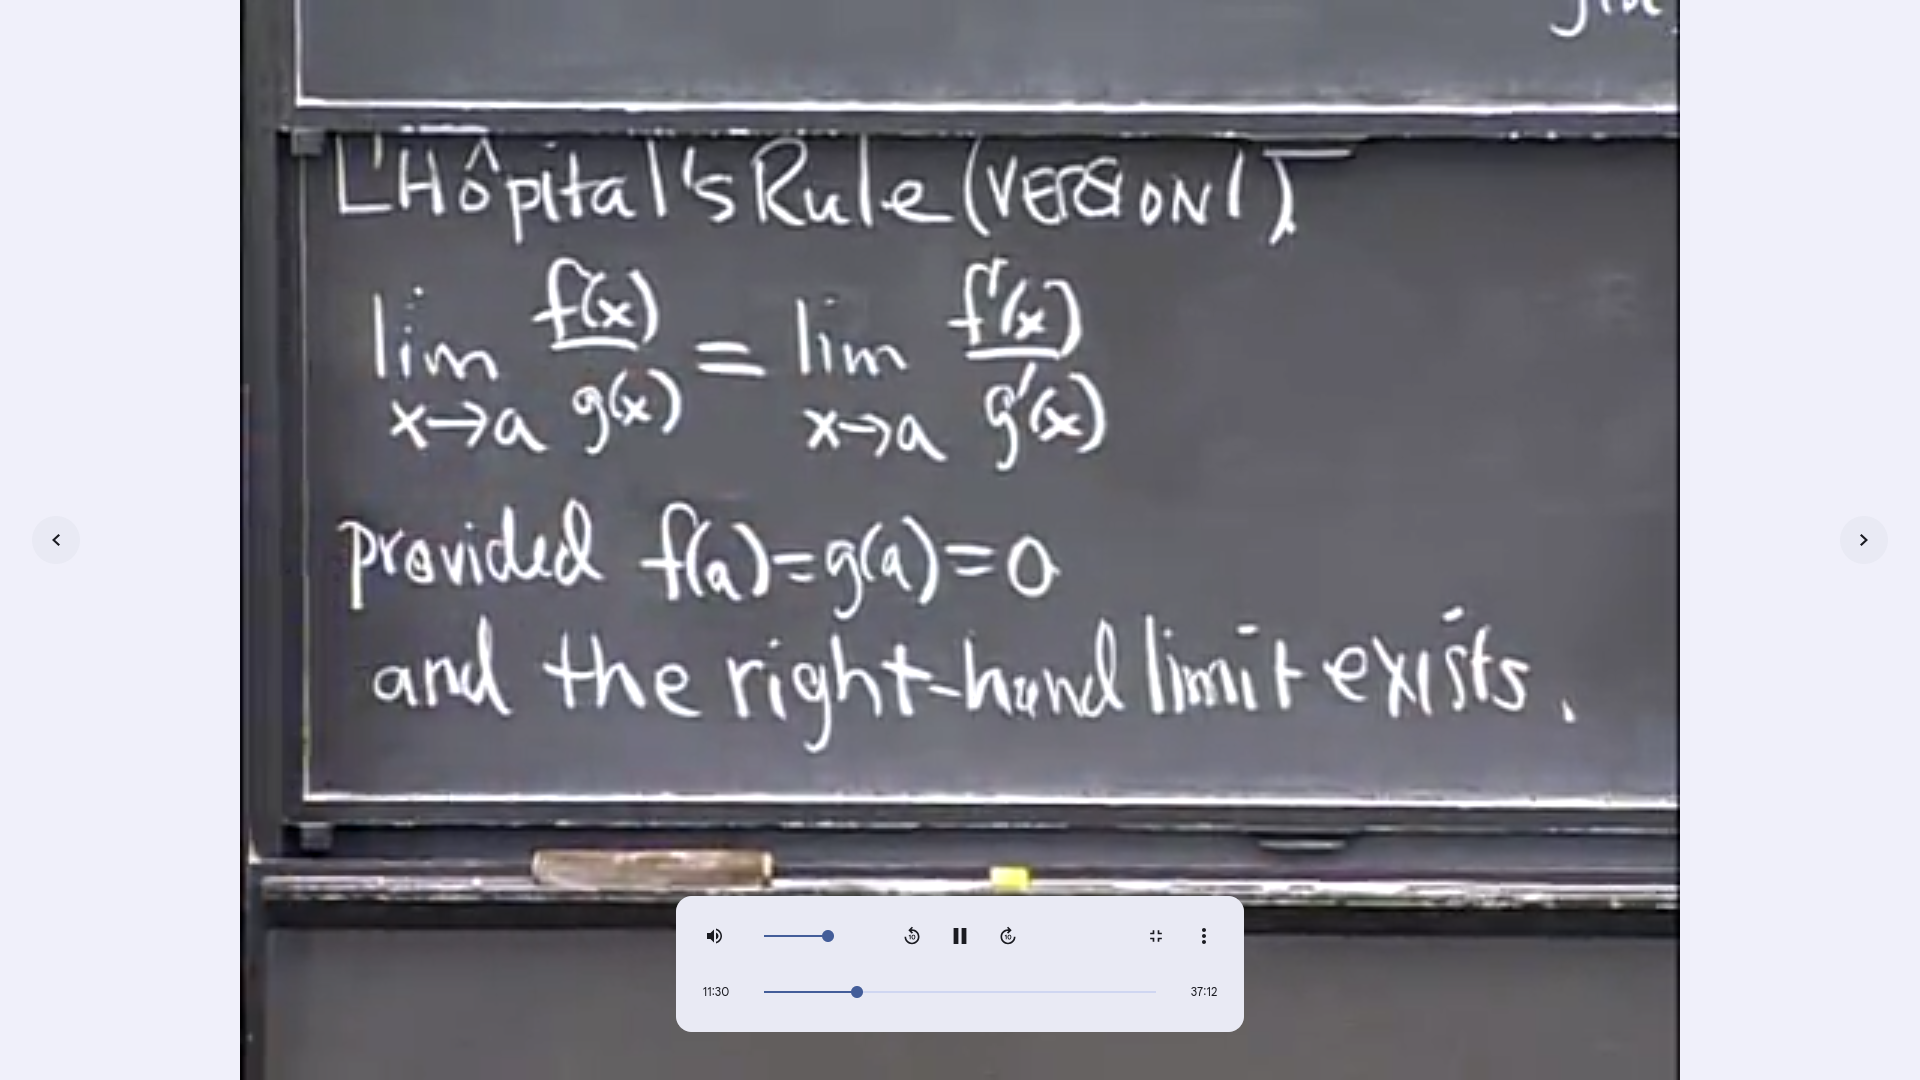 L'Hôpital's Rule (VERSION 1)
lim x→a f(x)/g(x) = lim x→a f'(x)/g'(x)
provided f(a)=g(a)=0
and the right-hand limit exists.
10
10
11:30
37:12